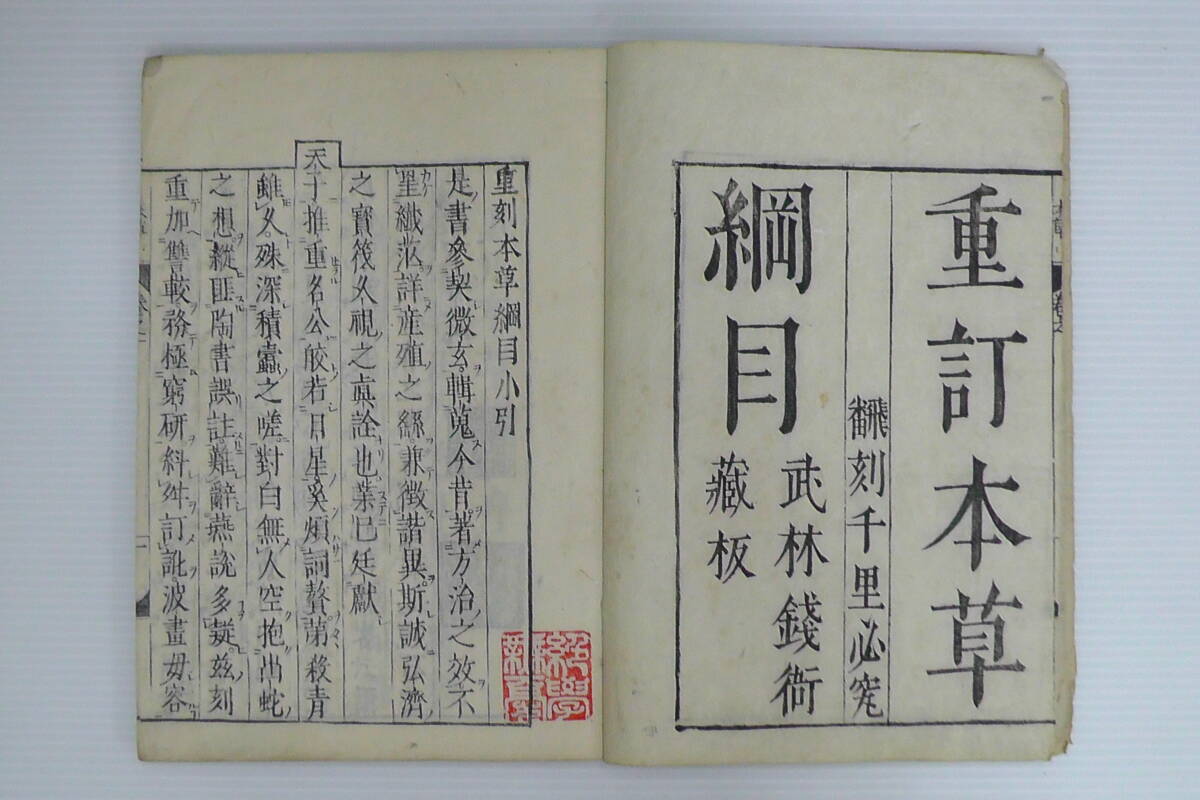 重訂本草
飜刻千里必究
綱目
武林錢衙
藏板
重刻本草綱目小引
是書參契微玄輯蒐今昔著方治之效不
纖茫詳產殖之繇兼徵諧異斯誠弘濟
之寶筏久視之眞詮也業已廷獻
天子推重名公皎若日星奚煩詞贅第殺青
雖久殊深積蠹之嗟對白無人空抱出蛇
之想縱匪陶書誤註難辭燕說多疑茲刻
重加讐較務極窮研糾舛訂訛波畫毋容